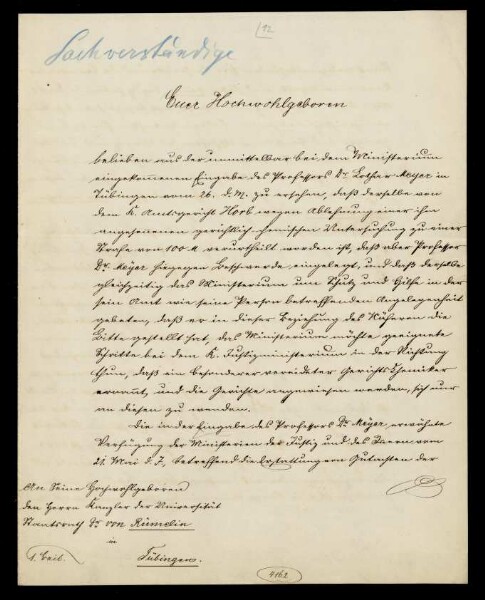 12
Sachverständige
Euer Hochwohlgeboren
belieben aus der unmittelbar bei dem Ministerium
eingekommenen Eingabe des Professors Dr. Lothar Meyer in
Tübingen vom 26. d. M. zu ersehen, daß derselbe von
dem K. Amtsgericht Horb wegen Ablehnung einer ihm
angesonnenen gerichtlich-chemischen Untersuchung zu einer
Strafe von 100 M verurtheilt worden ist, daß aber Professor
Dr. Meyer hiegegen Beschwerde eingelegt, und daß derselbe
gleichzeitig das Ministerium um Schutz und Hilfe in der
sein Amt wie seine Person betreffenden Angelegenheit
gebeten, daß er in dieser Beziehung des Näheren die
Bitte gestellt hat, das Ministerium möchte geeignete
Schritte bei dem K. Justizministerium in der Richtung
thun, daß ein besonderer vereideter Gerichts-Chemiker
ernannt, und die Gerichte angewiesen werden, sich nur
an diesen zu wenden.
Die in der Eingabe des Professors Dr. Meyer erwähnte
Verfügung der Ministerien der Justiz und des Innern vom
21. Mai d. J., betreffend die Erstattung von Gutachten der
An Seine Hochwohlgeboren
den Herrn Kanzler der Universität
Staatsrath Dr. von Rümelin
in
Tübingen.
1. Beil.
4162